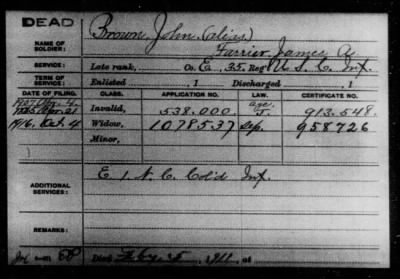 DEAD
NAME OF SOLDIER: Brown, John (alias)
Farrier, James A.
SERVICE: Late rank, Co. E, 35 Reg't U. S. C. Inf.
TERM OF SERVICE: Enlisted , 1 Discharged , 1
DATE OF FILING. CLASS. APPLICATION NO. LAW. CERTIFICATE NO.
Invalid, 538.000 age 913.548
1916. Oct. 4 Widow, 1078537 Sep. 958726
Minor,
ADDITIONAL SERVICES: E 1 N. C. Col'd Inf.
REMARKS:
Died , 1911, at